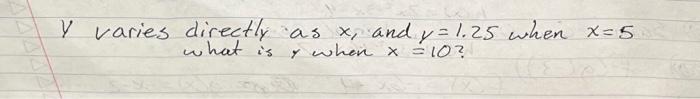 Y varies directly as x, and y = 1.25 when x = 5
what is y when x = 10?